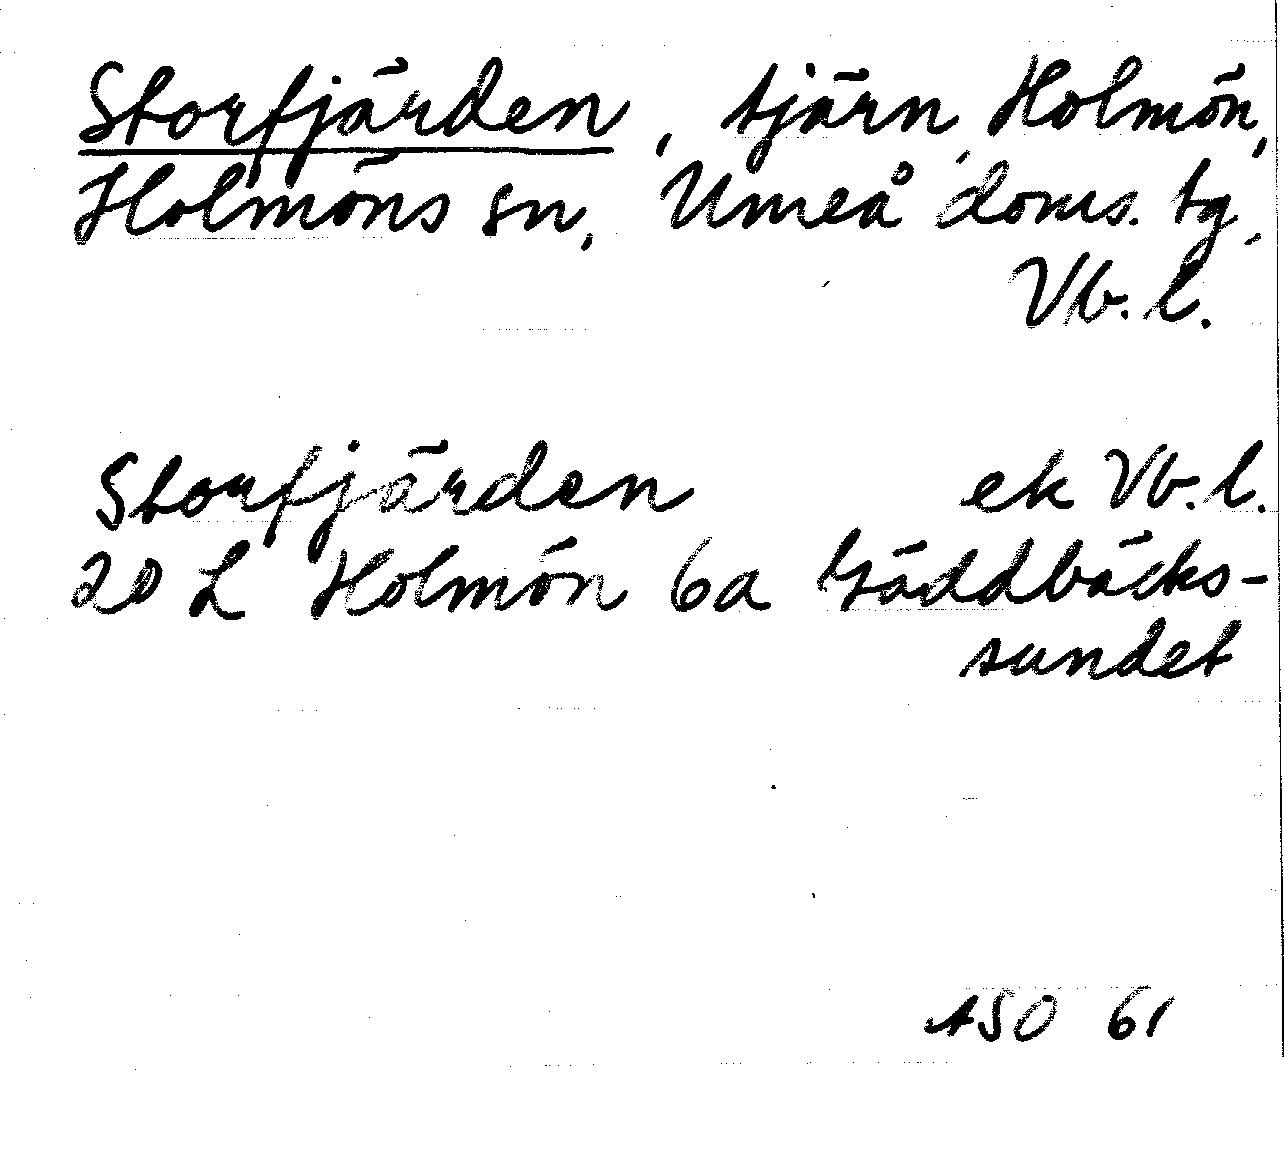 Storfjärden, tjärn, Holmön,
Holmöns sn, Umeå doms. tg,
Vb. l.
Storfjärden ek Vb. l.
20 L Holmön 6a Gäddbäcks-
sundet
ASO 61